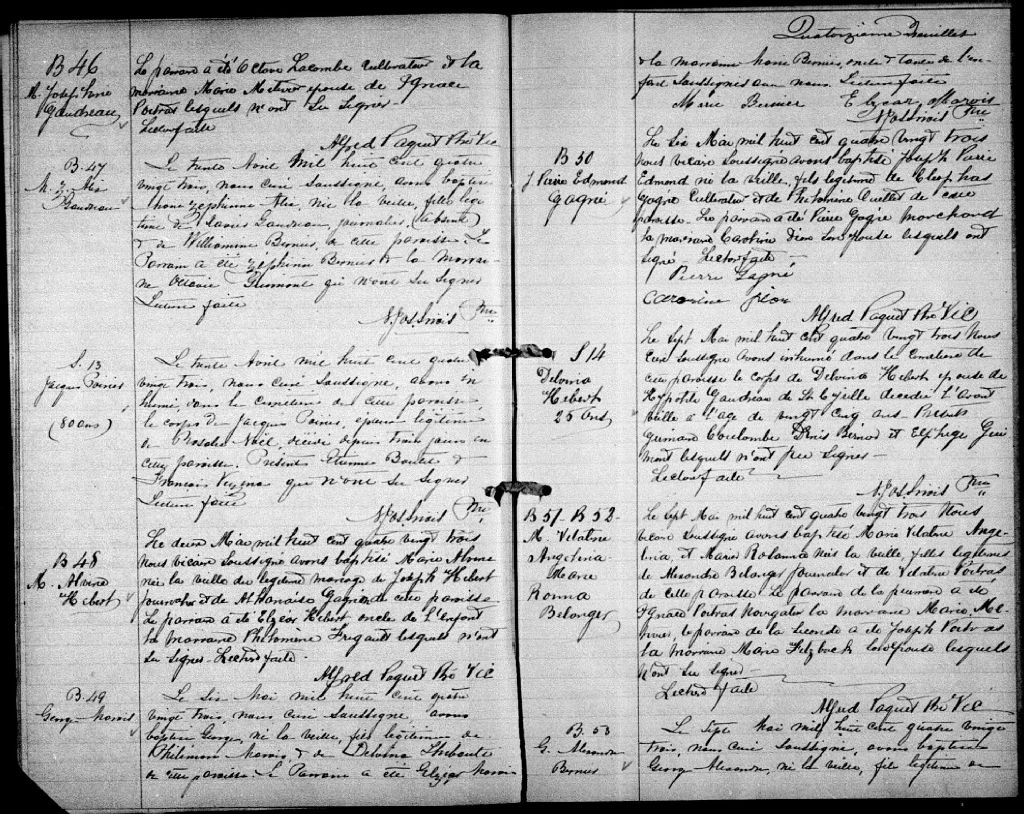 B 46
M. Joseph
Gaudreau
Le parrain a été Octave Lacombe Cultivateur & la
marraine Marie Metivier epouse de Ignace
Poitras lesquels n'ont su signer
Lecture faite
Alfred Paquet Ptre Vic
B. 47
Gaudreau
Le trente Avril mil huit cent quatre
vingt trois, nous curé soussigné, avons baptisé
née la veille, fille légi
time de Louis Gaudreau, journalier, (absent)
& de Bernier, de cette paroisse. Le
Parrain a été Bernier & la Marrai
ne qui n'ont su signer
Lecture faite
Ptre
S. 13
Jacques
(80 ans)
Le trente Avril mil huit cent quatre
vingt trois, nous curé soussigné, avons in
humé, dans le cimetière de cette paroisse
le corps de Jacques époux légitime
de Noël décédé depuis trois jours en
cette paroisse. Présents Etienne &
François que n'ont su signer
Lecture faite
Ptre
B 48
M. Alvine
Hebert
Le deux Mai mil huit cent quatre vingt trois
Nous vicaire soussigné avons baptisé Marie Alvine
née la veille du legitime mariage de Joseph Hebert
journalier et de Athanaise Gagné de cette paroisse
Le parrain a été Elzear Hebert oncle de L'Enfant
la marraine Philomene Fregault lesquels n'ont
su signer. Lecture faite
Alfred Paquet Ptre Vic
B. 49
George Marois
Le six Mai mil huit cent quatre
vingt trois, nous curé soussigné, avons
baptisé George, né la veille, fils légitime de
Philémon Marois, & de Delvina Thibault
de cette paroisse Le Parrain a été Elzear Marois
Quatorzième Feuillet
& la marraine Marie Bernier, oncle & tante de l'en
fant soussignés avec nous. Lecture faite
Marie Bernier Elzear Marois
Ptre
B 50
J. Pierre Edmond
Gagné
Le Six Mai mil huit cent quatre vingt trois
Nous vicaire soussigné avons baptisé Joseph Pierre
Edmond né la veille, fils legitime de Cleophas
Gagné Cultivateur et de Philomene Ouellet de cette
paroisse. Le parrain a été Pierre Gagné Marchand
la marraine Caroline Dion son epouse lesquels ont
signé Lecture faite
Pierre Gagné
Caroline Dion
Alfred Paquet Ptre Vic
S 14
Delvina
Hebert
25 ans
Le Sept Mai mil huit cent quatre vingt trois Nous
Curé soussigné avons inhumé dans le Cimetière de
cette paroisse le corps de Delvina Hebert epouse de
Hypolite Gaudreau de St Cyrille decedée l'avant
veille a l'age de vingt cinq ans Présents
Coulombe Denis Bérard et Elphege Gui
mont lesquels n'ont pu signer
Lecture faite
Ptre
B 51 - B 52
M. Vitaline
Angelina
Marie
Rosanna
Belanger
Le Sept Mai mil huit cent quatre vingt trois Nous
vicaire soussigné avons baptisé Marie Vitaline Ange
lina et Marie Rosanna nées la veille, filles legitimes
de Alexandre Belanger journalier et de Vitaline Poitras
de cette paroisse. Le parrain de la premiere a été
Ignace Poitras Navigateur la marraine Marie Me
tivier, le parrain de la seconde a été Joseph Poitras
la marraine Marie son epouse lesquels
n'ont su signer
Lecture faite
Alfred Paquet Ptre Vic
B. 53
G. Alexandre
Bernier
Le Sept Mai mil huit cent quatre vingt
trois, nous curé soussigné, avons baptisé
George Alexandre, né la veille, fils légitime de